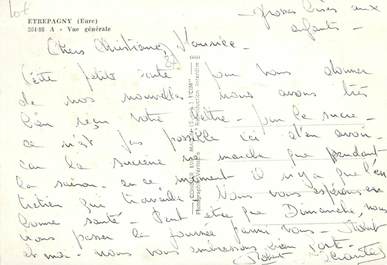 10€
ETREPAGNY (Eure)
204-88 A - Vue générale
grosses bises aux
enfants -
Chers Christiane,
Cette petite carte pour vous donner
de nos nouvelles nous avons très
bien reçu votre lettre - pour le sucre -
ce n'est pas possible ici d'en avoir
car la sucrerie ne marche que pendant
la saison - en ce moment il n'y a que l'en
tretien qui travaille - Nous vous espérons en
bonne santé - Peut être que Dimanche, nous
irons passer la journée parmi vous -
et moi - nous vous embrassons bien fort -